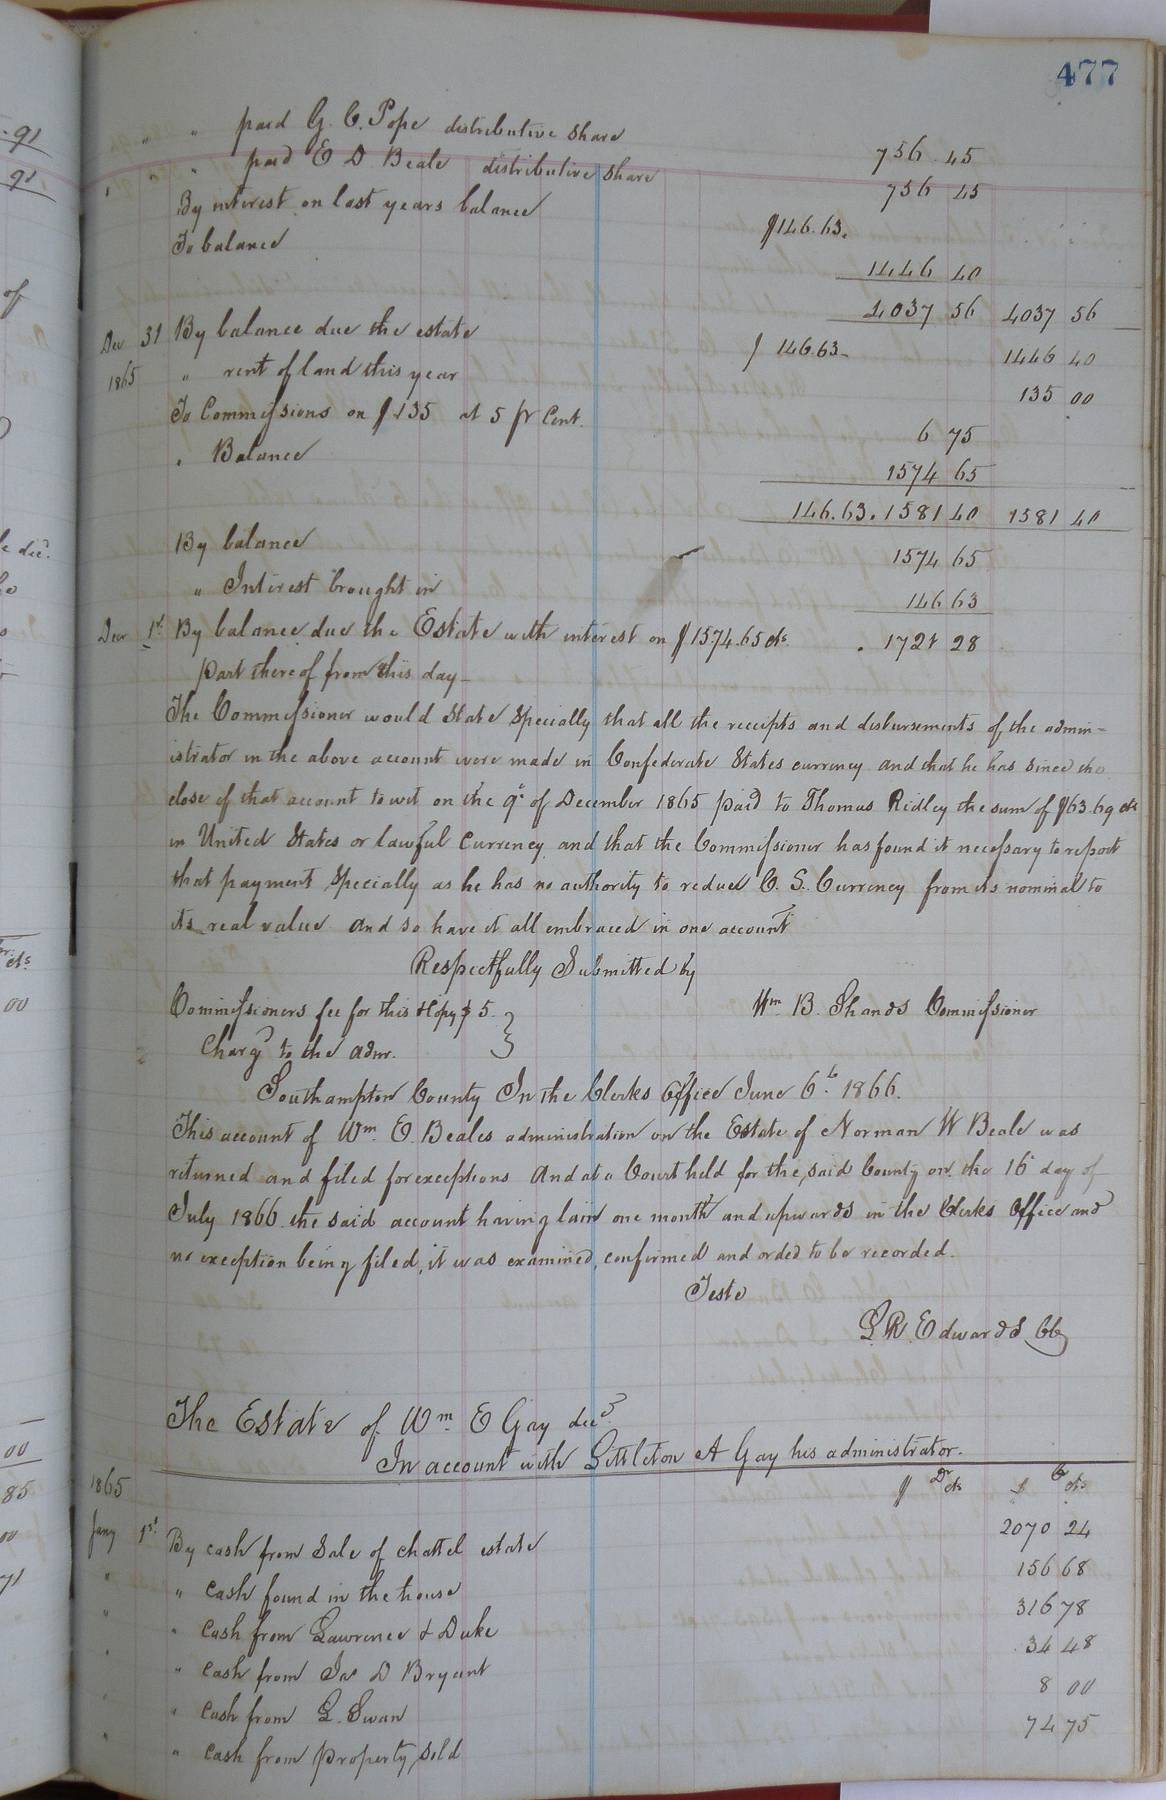 477
" " paid G. C. Pope distributive share 756 45
" " " paid E D Beale distributive share 756 45
By interest on last years balance $146.63.
To balance 1446 40
4037 56 4037 56
Dec 31 By balance due the estate $ 146.63- 1446 40
1865 " rent of land this year 135 00
To Commissions on $135 at 5 pr Cent. 6 75
" Balance 1574 65
146.63. 1581 40 1581 40
By balance 1574 65
" Interest brought in 146 63
Decr 1st By balance due the Estate with interest on $1574.65 cts. 1721 28
part thereof from this day-
The Commissioner would State Specially that all the receipts and disbursements of the admin-
istrator in the above account were made in Confederate States currency and that he has since the
close of that account to wit on the 9th of December 1865 paid to Thomas Ridley the sum of $63.69 cts
in United States or lawful Currency and that the Commissioner has found it necessary to report
that payment Specially as he has no authority to reduce C. S. Currency from its nominal to
its real value and so have it all embraced in one account
Respectfully Submitted by
Commissioners fee for this & Copy $5. Wm B. Shands Commissioner
Chargd to the admr.
Southampton County In the Clerks Office June 6th 1866.
This account of Wm. E. Beales administration on the Estate of Norman W Beale was
returned and filed for exceptions And at a Court held for the said County on the 16th day of
July 1866 the said account having lain one month and upwards in the Clerks Office and
no exception being filed, it was examined, confirmed and orded to be recorded.
Teste
L R. Edwards CC
The Estate of Wm. E Gay decd.
In account with Littleton A Gay his administrator.
1865 $ Dr cts $ Cr cts
Jany 1st By cash from Sale of chattel estate 2070 24
" " cash found in the house 156 68
" " cash from Lawrence & Duke 316 78
" " cash from Jas D Bryant 34 48
" " cash from L. Swan 8 00
" " cash from property sold 74 75